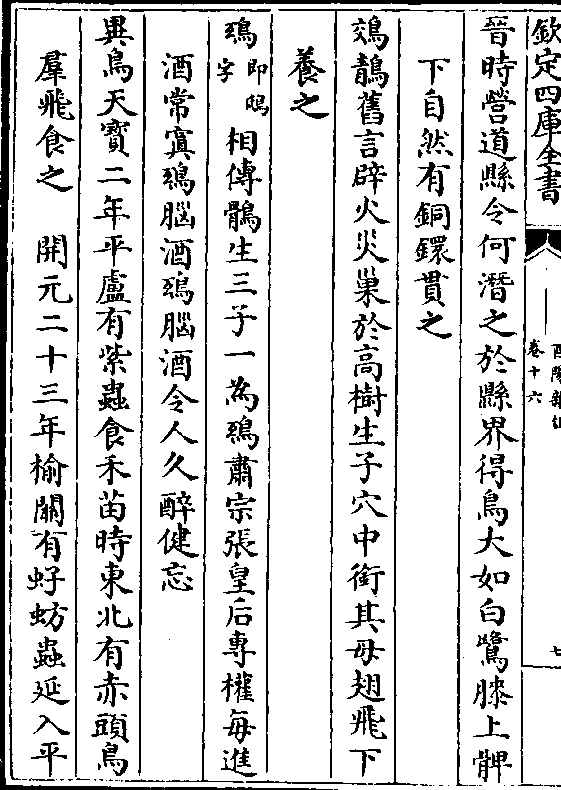 欽定四庫全書
酉陽雜俎
卷十六
七
晉時營道縣令何潛之於縣界得鳥大如白鷺膝上髀
下自然有銅鐶貫之
鵁鶄舊言辟火災巢於高樹生子穴中銜其母翅飛下
養之
鵄即鴟字 相傳鶻生三子一為鵄肅宗張皇后專權每進
酒常寘鵄腦酒鵄腦酒令人久醉健忘
異鳥天寶二年平盧有紫蟲食禾苗時東北有赤頭鳥
羣飛食之 開元二十三年榆關有虸蚄蟲延入平